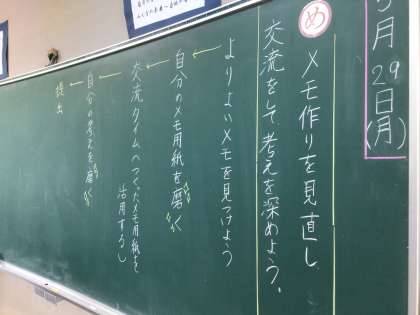 月29日(月)
め
メモ作りを見直し
交流をして考えを深めよう。
よりよいメモを見つけよう
自分のメモ用紙を磨く
交流タイムへつくったメモ用紙を
活用するし
自分の考えを磨く
提出